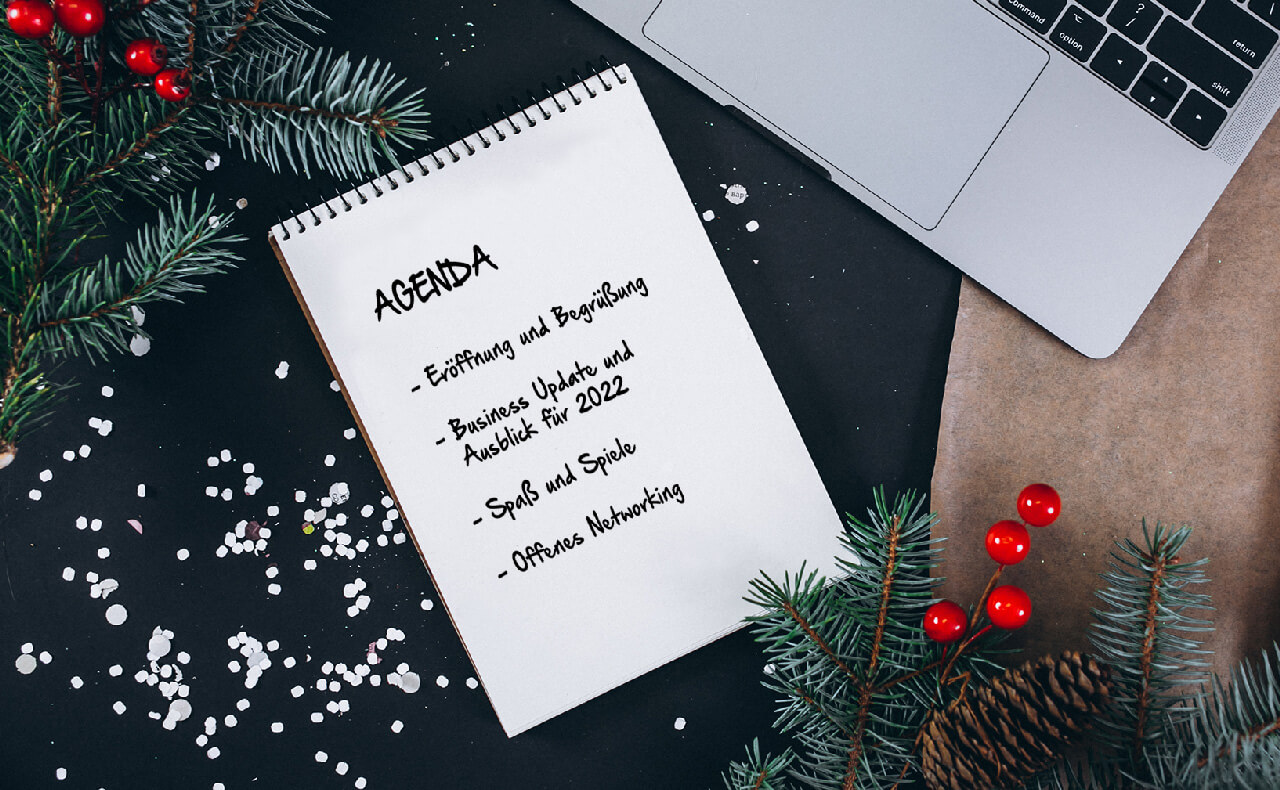 AGENDA
- Eröffnung und Begrüßung
- Business Update und
Ausblick für 2022
- Spaß und Spiele
- Offenes Networking
command
option
?
/
return
shift